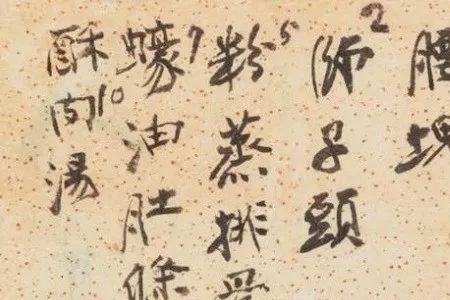 腰塊
師子頭2
粉蒸排骨5
蠔油肚條7
酥肉湯10